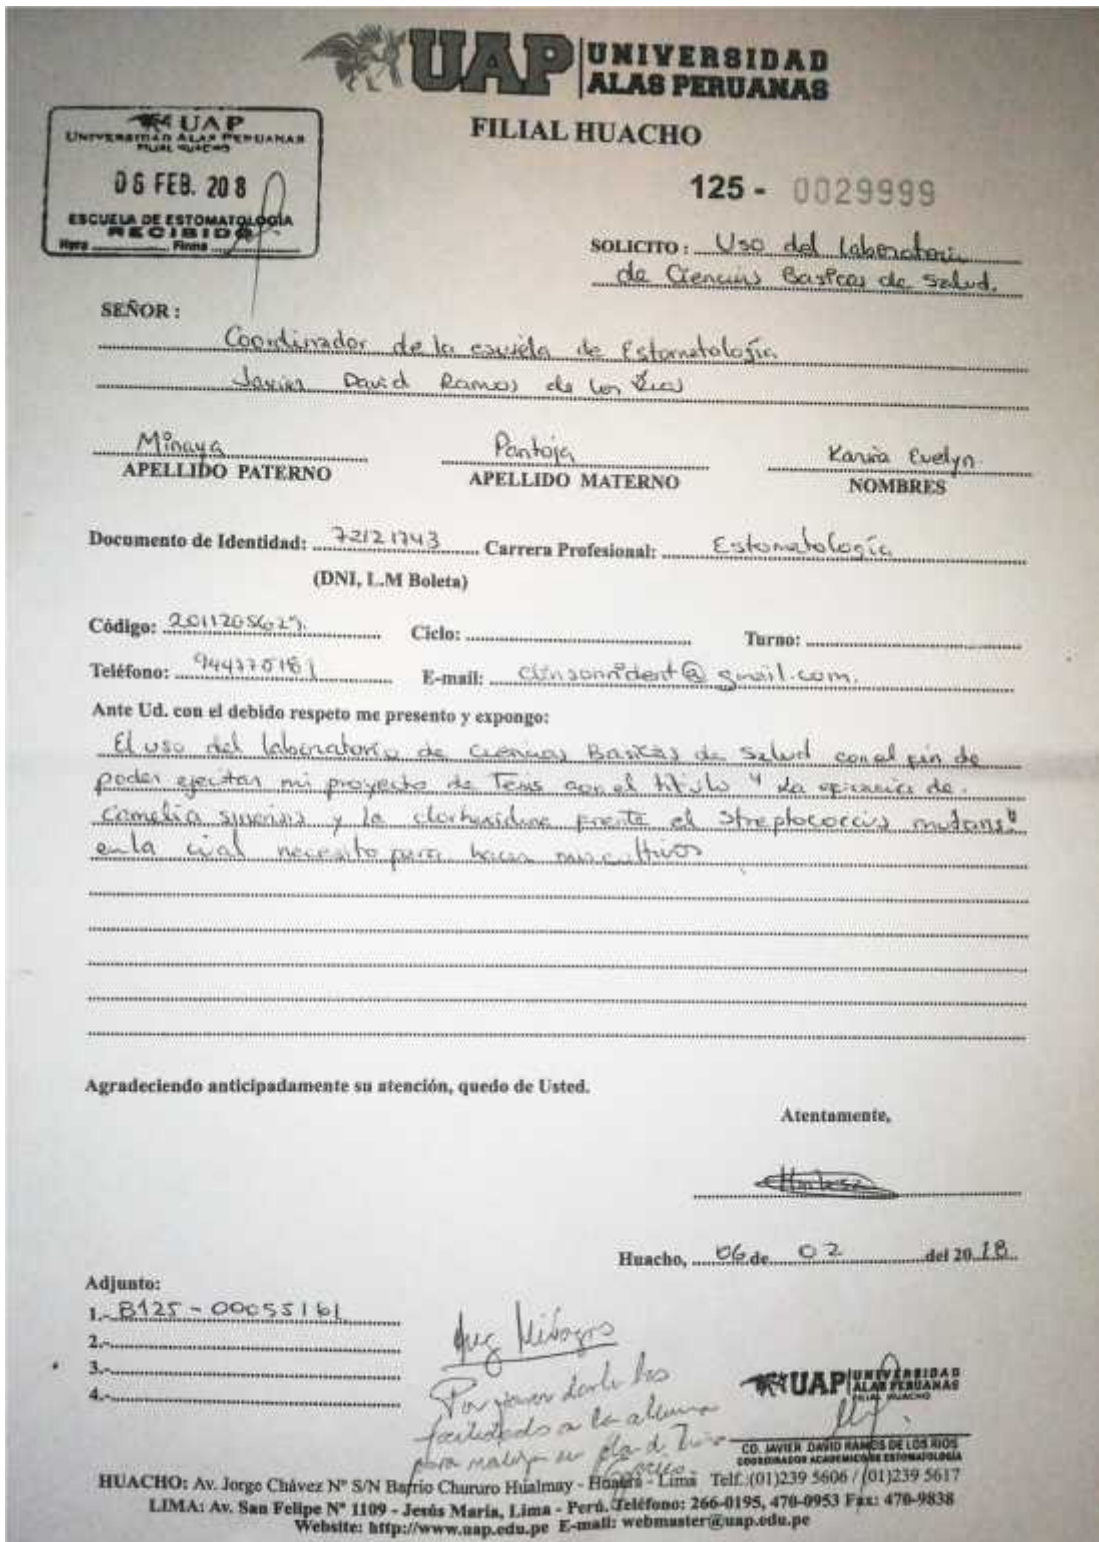 UAP UNIVERSIDAD
ALAS PERUANAS
FILIAL HUACHO
UAP
UNIVERSIDAD ALAS PERUANAS
FILIAL HUACHO
06 FEB. 208
ESCUELA DE ESTOMATOLOGÍA
RECIBIDO
Hora Firma
125 - 0029999
SOLICITO : Uso del laboratorio
de Ciencias Basicas de salud.
SEÑOR :
Coordinador de la escuela de Estomatología
Javier David Ramos de los
Minaya Pantoja Evelyn.
APELLIDO PATERNO APELLIDO MATERNO NOMBRES
Documento de Identidad: 72121743 Carrera Profesional: Estomatología
(DNI, L.M Boleta)
Código: Ciclo: Turno:
Teléfono: 944370181 E-mail: @gmail.com.
Ante Ud. con el debido respeto me presento y expongo:
El uso del laboratorio de Ciencias Basicas de Salud con el fin de
poder ejecutar mi proyecto de Tesis con el titulo "La eficacia de
camelia sinensis y la clorhexidina frente el Streptococcus mutans"
en la cual necesito para hacer mis cultivos
Agradeciendo anticipadamente su atención, quedo de Usted.
Atentamente,
Huacho, 06 de 02 del 2018
Adjunto:
1.- B125 - 00055161
2.-
3.-
4.-
Milagros
Por favor darle las
facilidades a la alumna
para realizar su
UAP UNIVERSIDAD
ALAS PERUANAS
FILIAL HUACHO
CD. JAVIER DAVID RAMOS DE LOS RIOS
COORDINADOR ACADEMICO DE ESTOMATOLOGÍA
HUACHO: Av. Jorge Chávez Nº S/N Barrio Chururo Hualmay - Huaura - Lima Telf.:(01)239 5606 / (01)239 5617
LIMA: Av. San Felipe Nº 1109 - Jesús María, Lima - Perú. Teléfono: 266-0195, 470-0953 Fax: 470-9838
Website: http://www.uap.edu.pe E-mail: webmaster@uap.edu.pe